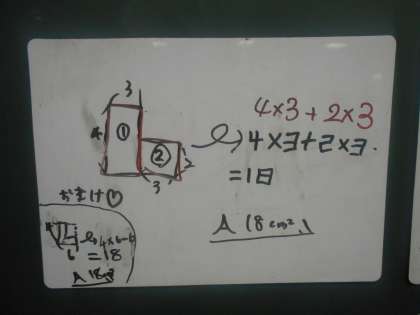 3
4
①
②
2
3
4×3+2×3
4×3+2×3
=18
A 18cm²
おまけ♡
6
4×6-6
=18
A 18cm²